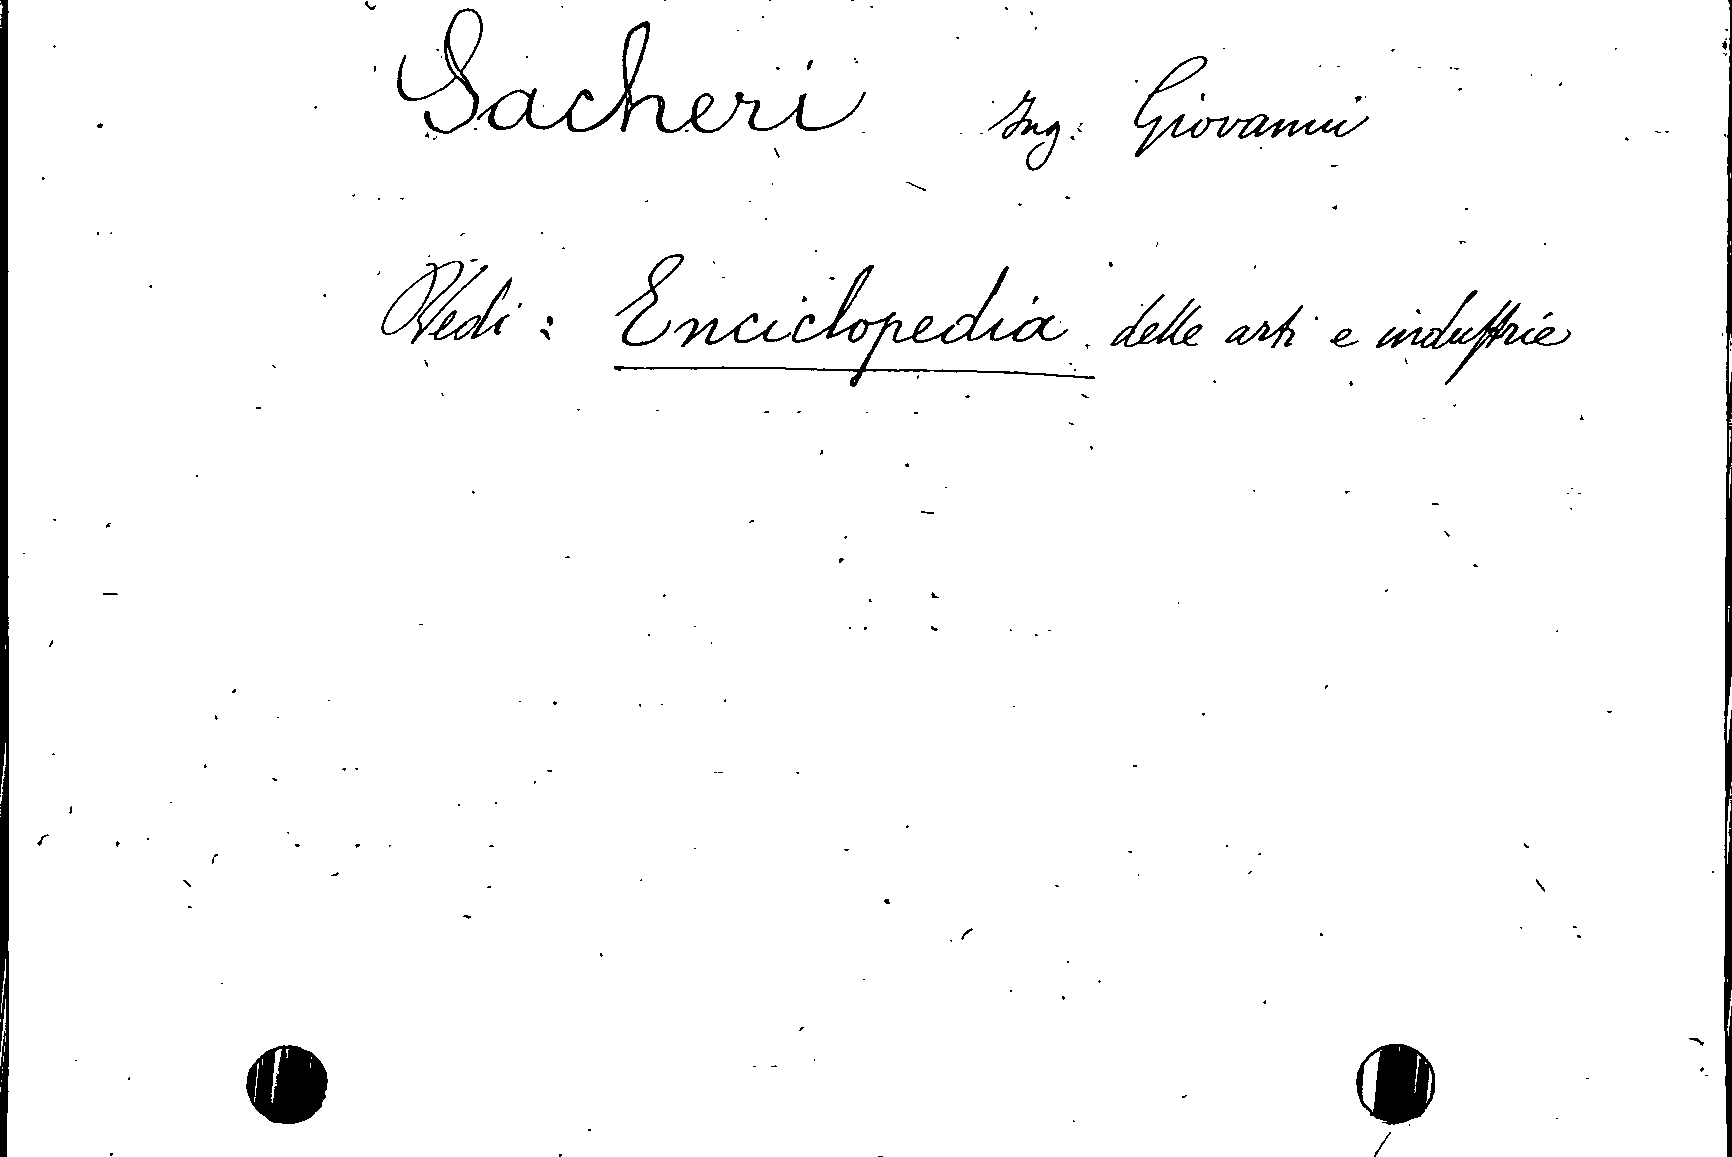 Sacheri Ing. Giovanni
Vedi: Enciclopedia delle arti e industrie